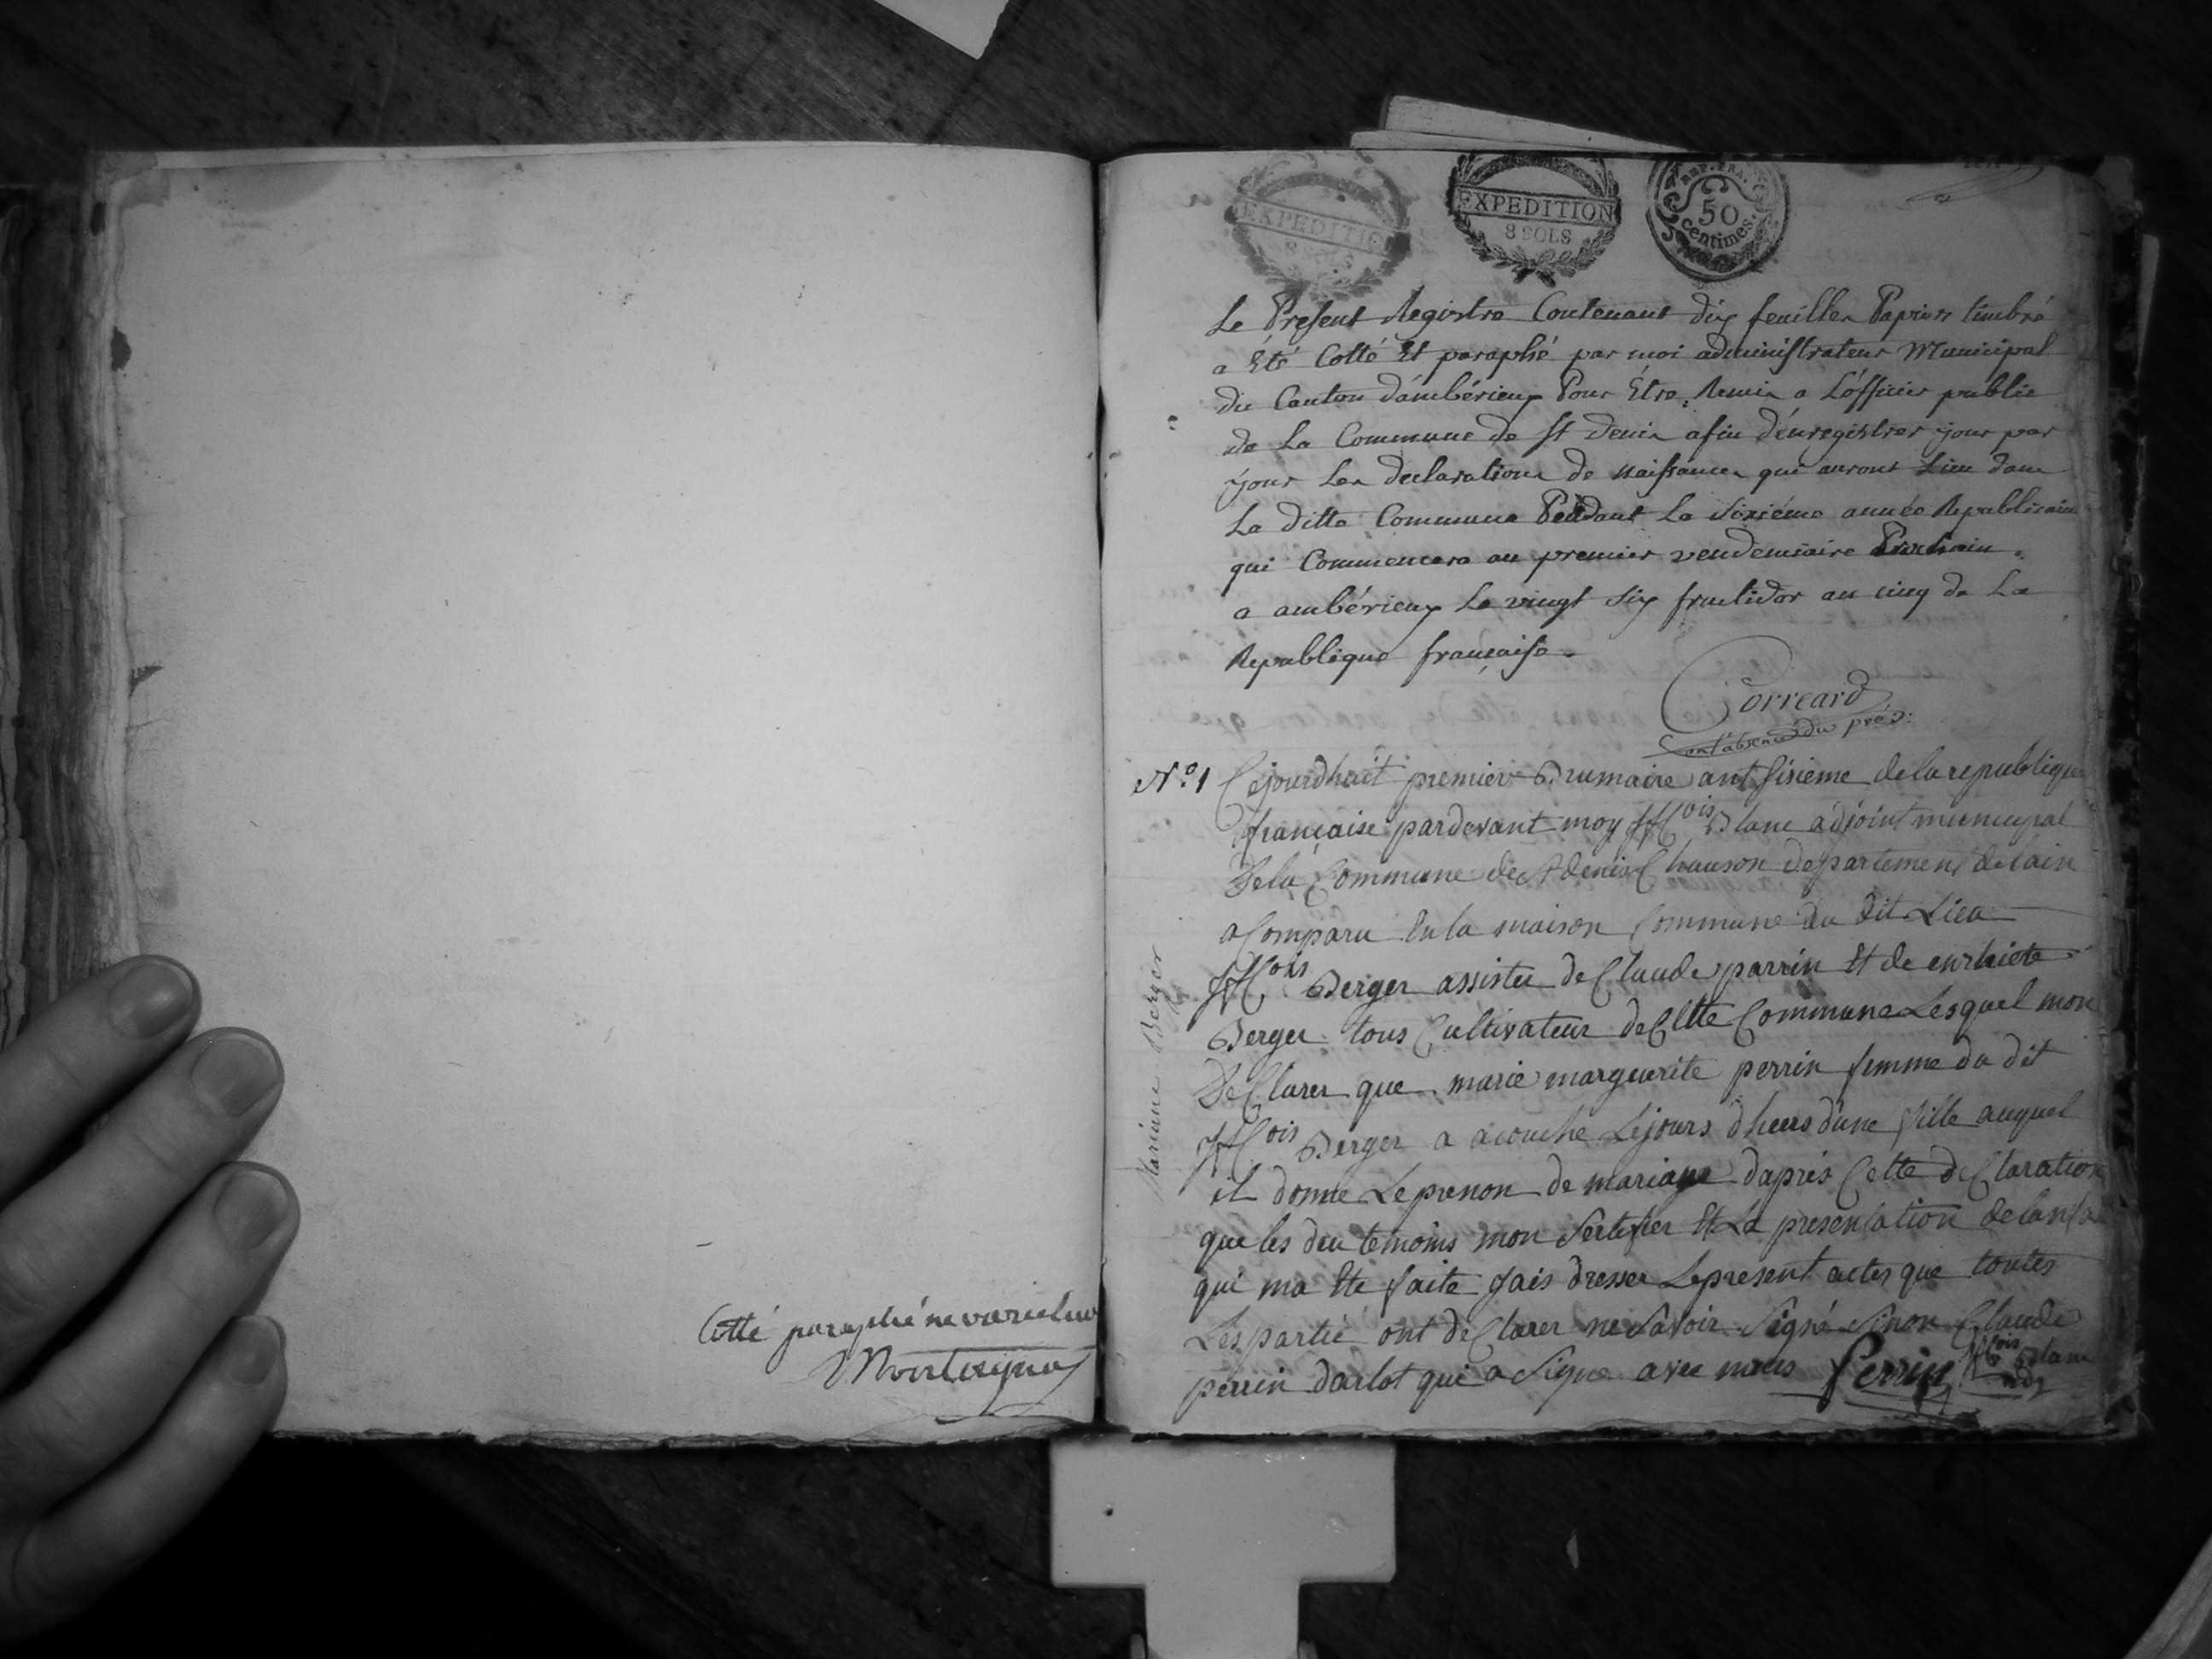 Cotté paraphé ne varietur
EXPEDITIO
8 SOLS
EXPEDITION
8 SOLS
REP. FRA.
50
centimes.
Le Present Registre Contenant dix feuilles Papier timbré
a Eté Cotté Et paraphé par moi administrateur Municipal
du Canton d'ambérieux Pour Etre Remis a L'officier public
de La Commune de St Denis afin d'enregistrer jour par
jour Les declarations de naissances qui auront Lieu dans
La ditte Commune Pendant La Sixiéme année Republicaine
qui Commencera au premier vendemiaire Prochain.
a ambérieux Le vingt Six fructidor an cinq de La
Republique française.
Correard
en l'absence du prés:
N.º 1 Cejourdhuit premier Brumaire ant Sisieme de la republique
française pardevant moy ffCois Blanc adjoint municipal
De la Commune de St denis Chauson departement de lain
a Comparu En la maison Commune du dit Lieu
ffCois Berger assister de Claude perrin Et de enrhiete
Berger tous Cultivateur de Cette Commune Lesquel mon
DeClarer que marie marguerite perrin femme du dit
ffCois Berger a acouche Lejours dheers dune fille auquel
il donne Leprenon de mariane dapres Cette deClaration
que les deu temoins mon Sertifier Et La presentation de lanfa
qui ma Ete faite Jais dresser Lepresent actes que toutes
Lespartie ont deClarer ne Savoir Signé Sinon Claude
perrin darlot qui a Signe avec nous Perrin ffCois Blanc
adj
Marianne Berger